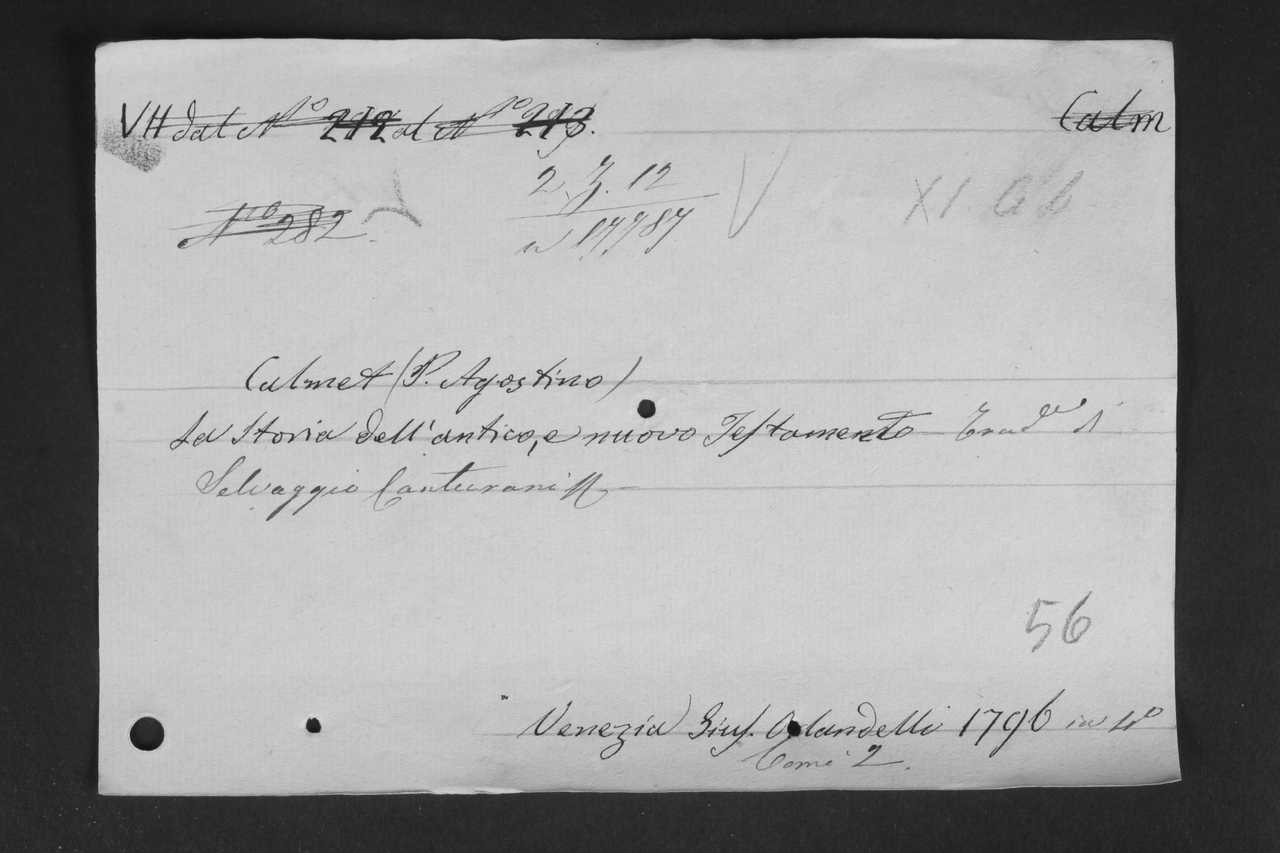 VH dal Nº 212 al Nº 213. Calm
2. Z. 12
XI. G b
Nº 282.
17787
Calmet (P. Agostino)
La Storia dell'antico, e nuovo Testamento Trad.ne di
Selvaggio Canturani
56
Venezia Gius. Orlandelli 1796 in 4º
Tomi 2.